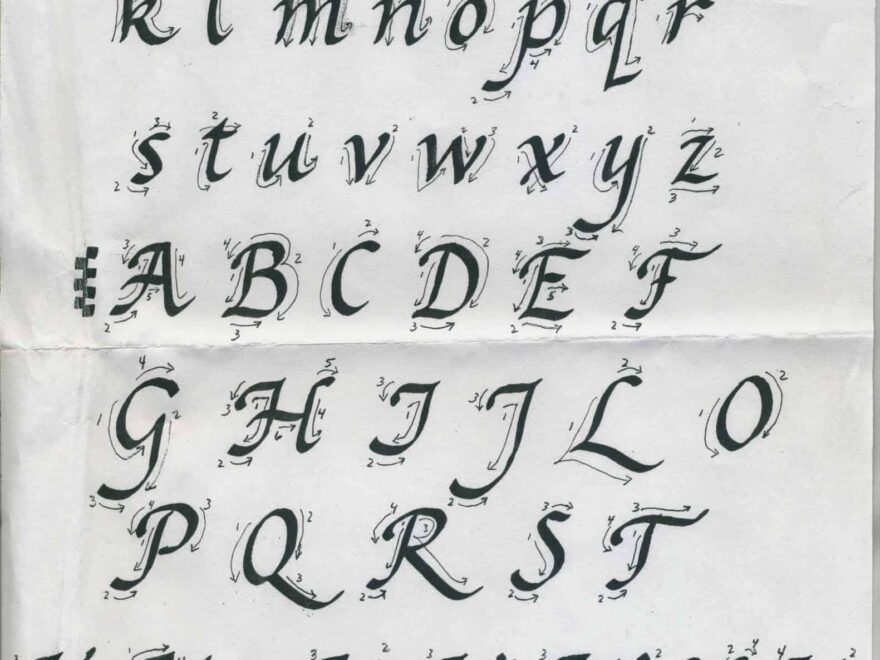 k l m n o p q r
s t u v w x y z
A B C D E F
G H I J L O
P Q R S T